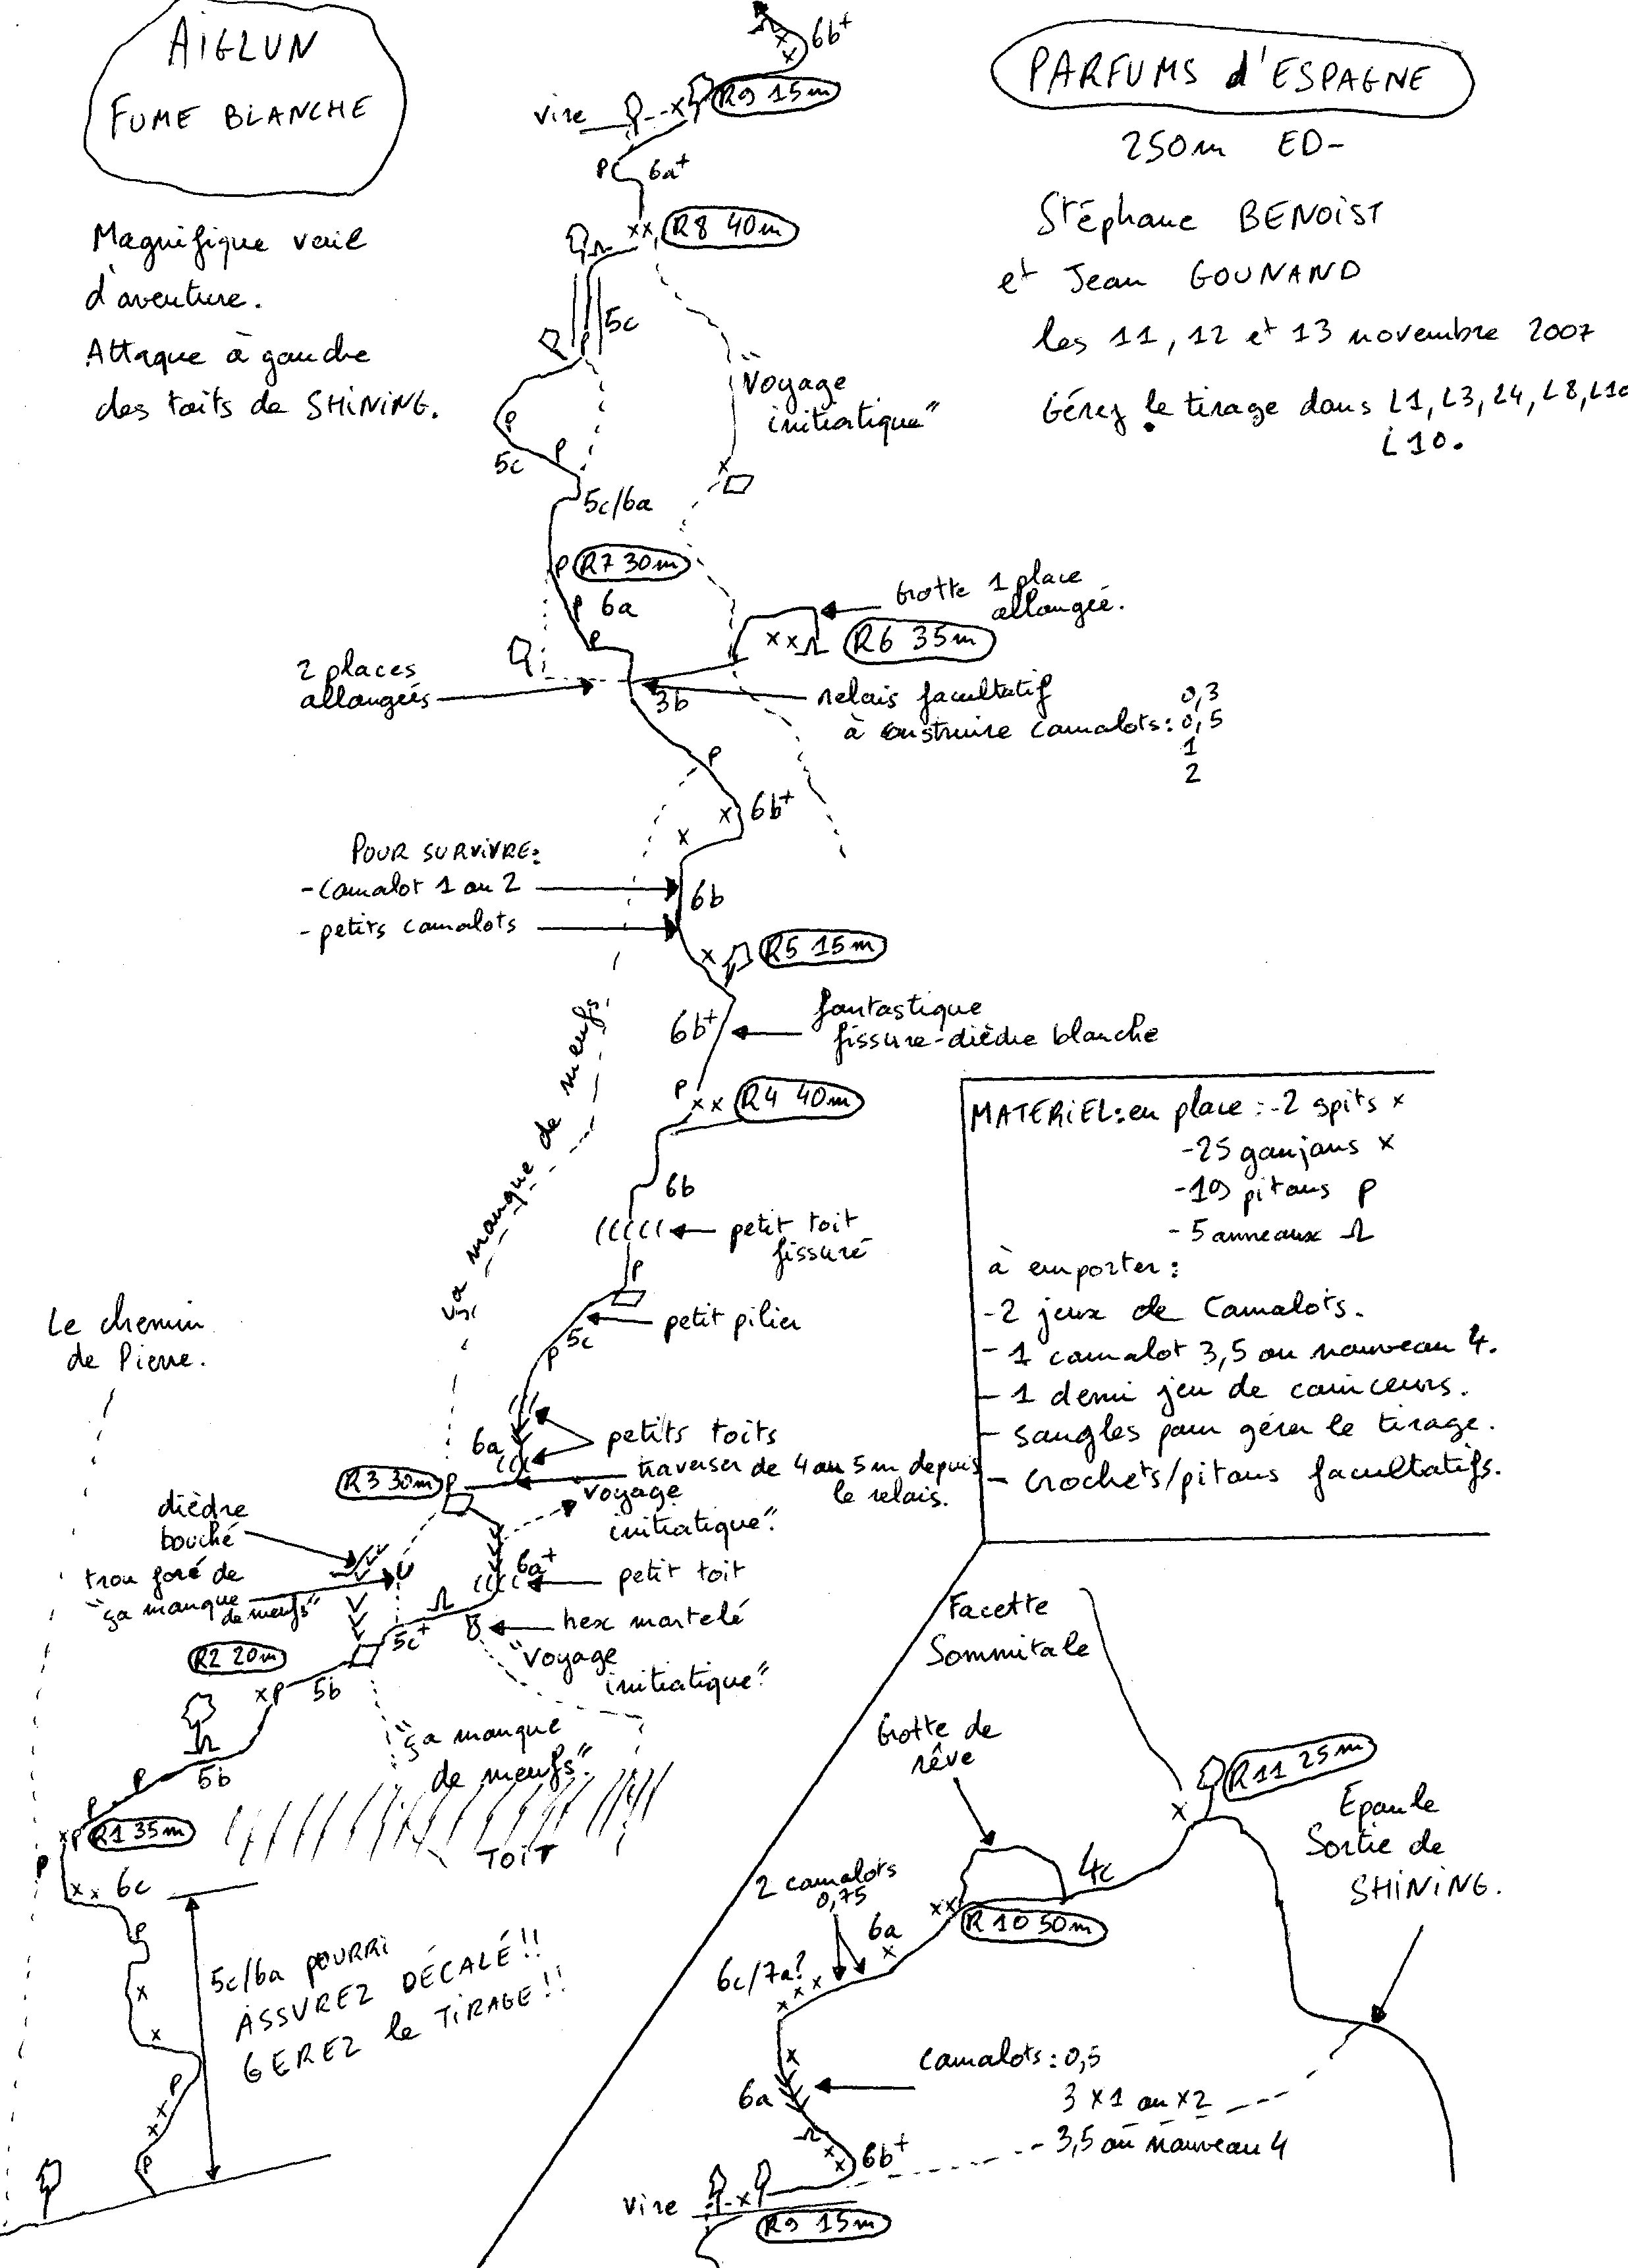 AIGLUN
FUME BLANCHE
Magnifique voie
d'aventure.
Attaque à gauche
des toits de SHINING.
PARFUMS d'ESPAGNE
250m ED-
Stéphane BENOIST
et Jean GOUNAND
les 11, 12 et 13 novembre 2007
Gérez le tirage dans L1, L3, L4, L8, L10
L10.
6b+
R9 15m
vire
x
P
6a+
xx
R8 40m
5c
P
"Voyage
initiatique"
P
P
5c
x
5c/6a
P
R7 30m
P 6a
P
Grotte 1 place
allongée.
xx
R6 35m
2 places
allongées
3b
relais facultatif
à construire camalots: 0,3
0,5
1
2
P
x
6b+
x
POUR SURVIVRE:
- camalot 1 ou 2
- petits camalots
6b
x
R5 15m
6b+
fantastique
fissure-dièdre blanche
P
xx
R4 40m
6b
petit toit
fissuré
P
petit pilier
5c
P
ça manque de meufs
Le chemin
de Pierre.
6a
petits toits
traverser de 4 ou 5m depuis
le relais.
R3 30m
P
"voyage
initiatique"
dièdre
bouché
trou foré de
"ça manque
de meufs"
6a+
petit toit
hex martelé
5c+
"Voyage
initiatique"
R2 20m
xP
5b
"ça manque
de meufs"
5b
P
P
xP
R1 35m
TOIT
P
xx 6c
P
x
x
P
xx
P
5c/6a POURRI
ASSUREZ DÉCALÉ!!
GEREZ le TIRAGE!!
MATERIEL: en place: - 2 spits x
- 25 goujons x
- 19 pitons P
- 5 anneaux
à emporter:
- 2 jeux de Camalots.
- 1 camalot 3,5 ou nouveau 4.
- 1 demi jeu de coinceurs.
- sangles pour gérer le tirage.
- crochets/pitons facultatifs.
Facette
Sommitale
Grotte de
rêve
x
R11 25m
Epaule
Sortie de
SHINING.
4c
2 camalots
0,75
xx
R10 50m
6a
x
6c/7a?
xxx
x
6a
camalots: 0,5
3 x1 ou x2
- 3,5 ou nouveau 4
xx
6b+
vire
x
R9 15m